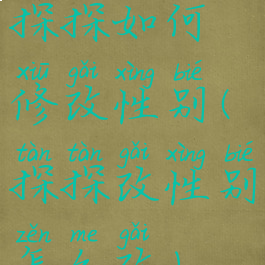 探探如何
xiū gǎi xìng bié
修改性别(
tàn tàn gǎi xìng bié
探探改性别
zěn me gǎi
怎么改)